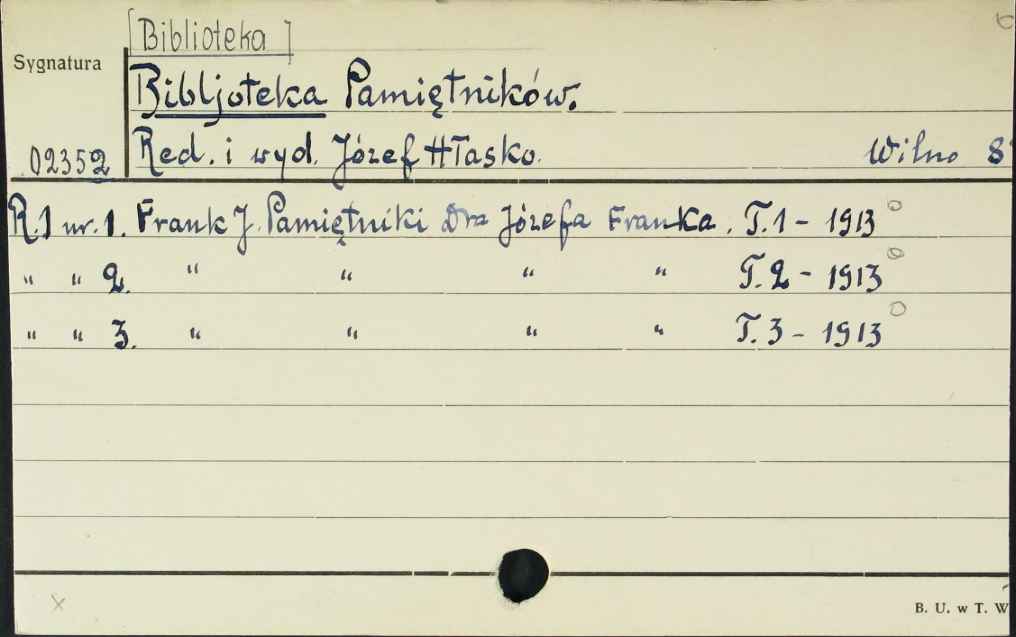 [Biblioteka]
Sygnatura
Bibljoteka Pamiętników.
02352 Red. i wyd. Józef Hłasko. Wilno 8°
R.1 nr. 1. Frank J. Pamiętniki Dra Józefa Franka. T.1 - 1913
„ „ 2. „ „ „ „ T.2 - 1913
„ „ 3. „ „ „ „ T.3 - 1913
x
B. U. w T. W